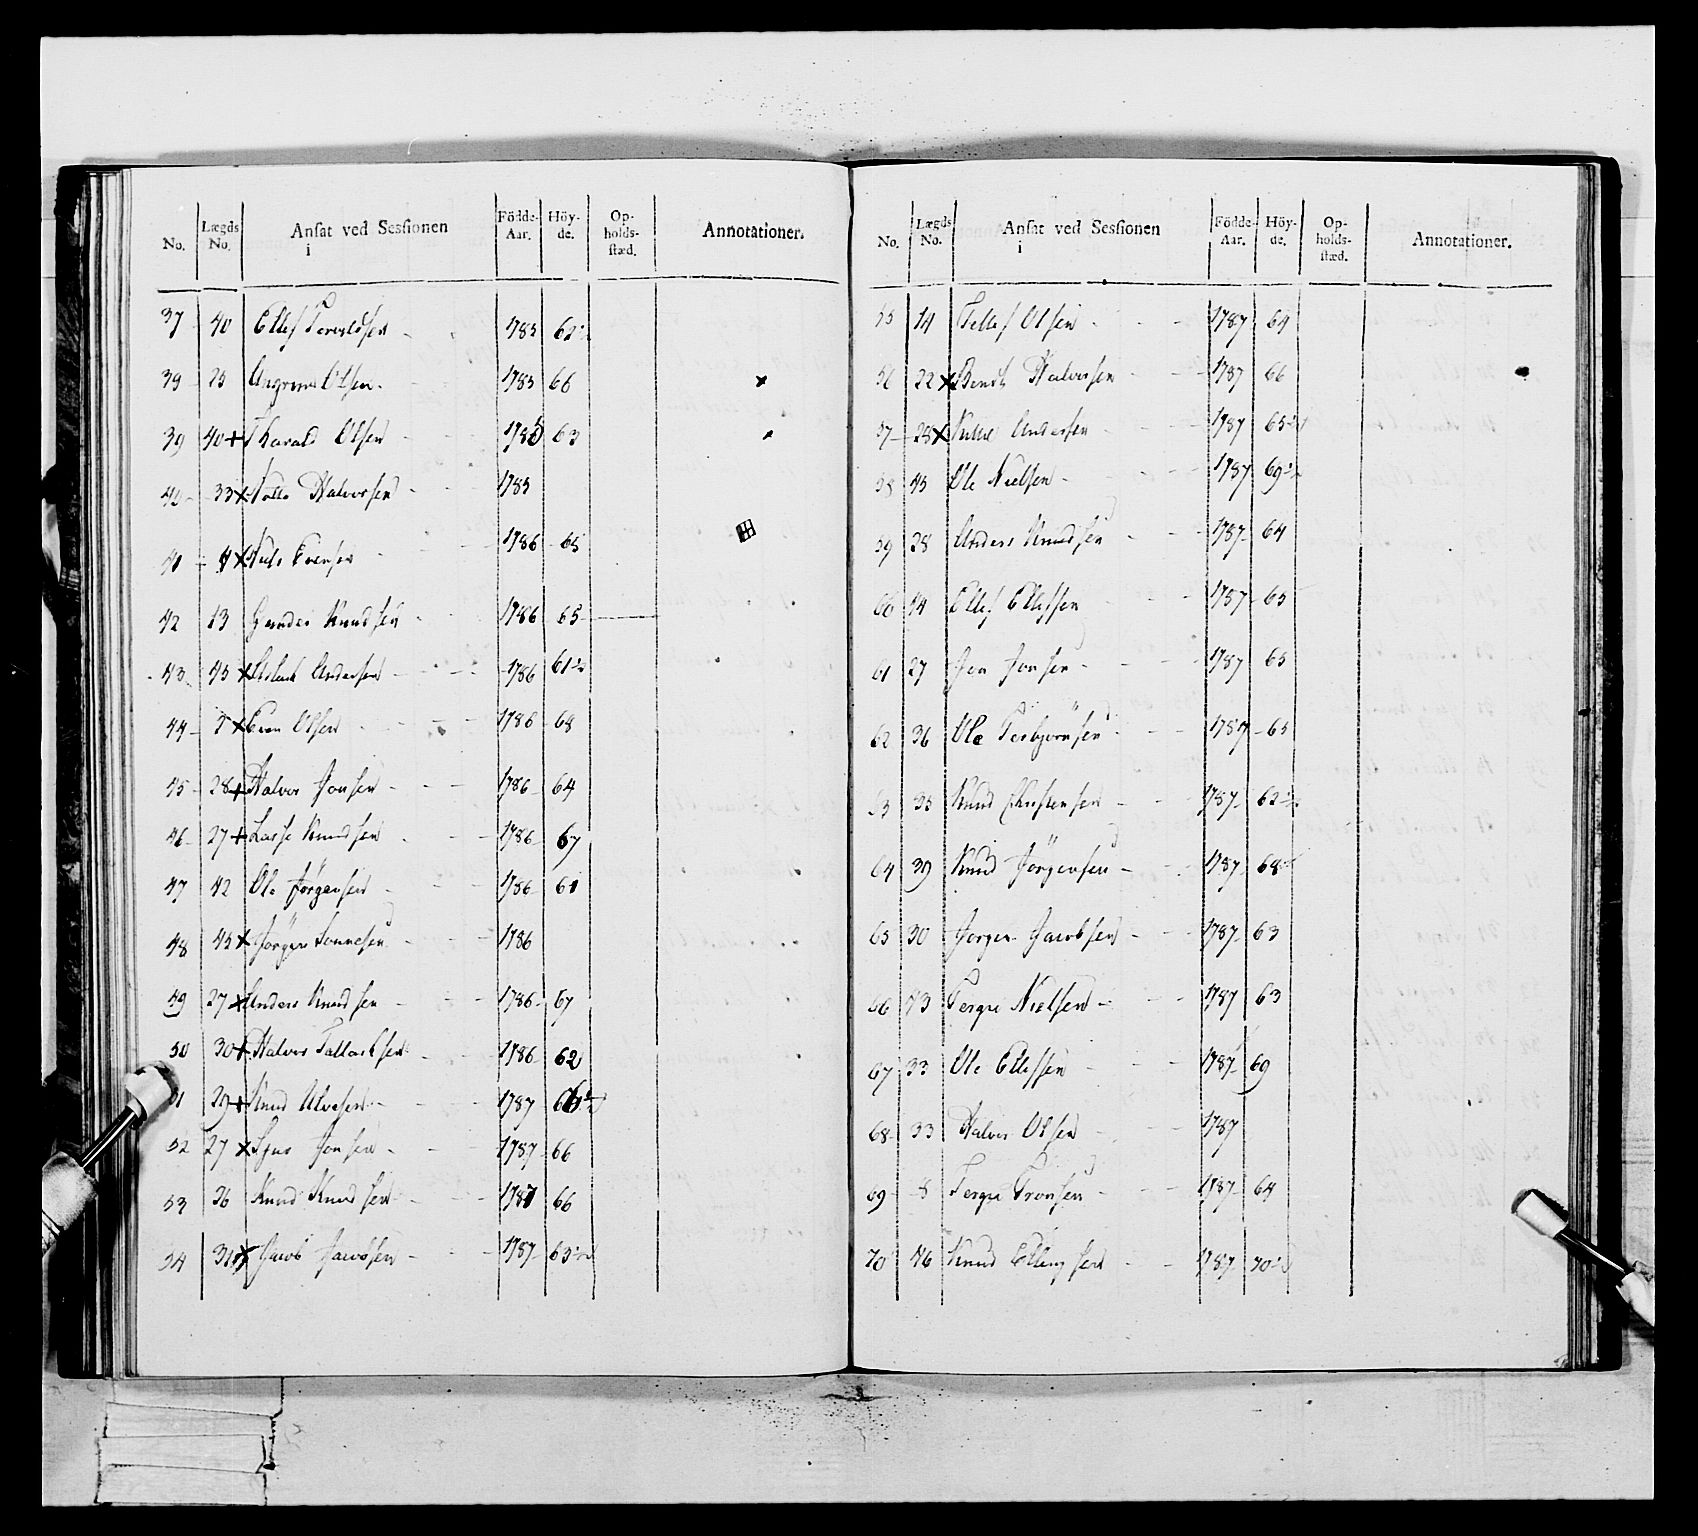 No. Lægds No. Ansat ved Sessionen i Födde-Aar. Höy-de. Op-holds-stæd. Annotationer.
37 40 Ellef 1785 62½
39 25 Olsen 1785 66 x
39 40 + Harald Olsen 1785 63
40 33 x Halvorsen 1785
41 4 x Niels Evensen 1786 65
42 13 Gunder Knudsen 1786 65
43 45 x Aslach Andersen 1786 61½
44 x Even Olsen 1786 68
45 28 + Halvor Jonsen 1786 64
46 27 + Lasse Knudsen 1786 67
47 42 Ole Jörgensen 1786 61
48 45 x Jörgen 1786
49 27 x Anders Knudsen 1786 67
50 30 + Halvor Tallachsen 1786 62
51 29 + Knud 1787
52 27 x Jonsen 1787 66
53 26 Knud Knudsen 1787 66
54 x Jacob Jacobsen 1787 65½
No. Lægds No. Ansat ved Sessionen i Födde-Aar. Höy-de. Op-holds-stæd. Annotationer.
55 14 Tellef Olsen 1787 64
56 22 x Bendt Halvorsen 1787 66
57 28 x Andersen 1787 65½
58 45 Ole Nielsen 1787 69½
59 28 Anders Knudsen 1787 64
60 14 Ellef Ellefsen 1787 65
61 27 Jon Jonsen 1787 65
62 36 Ole Torbjörnsen 1787 65
63 35 Knud Christensen 1787 62½
64 39 Knud Jörgensen 1787 68½
65 30 Jörgen Jacobsen 1787 63
66 43 Tergie Nielsen 1787 63
67 33 Ole Ellefsen 1787 69
68 33 Halvor Olsen 1787
69 Tergie Tronsen 1787 64
70 46 Knud Ellingsen 1787 70½